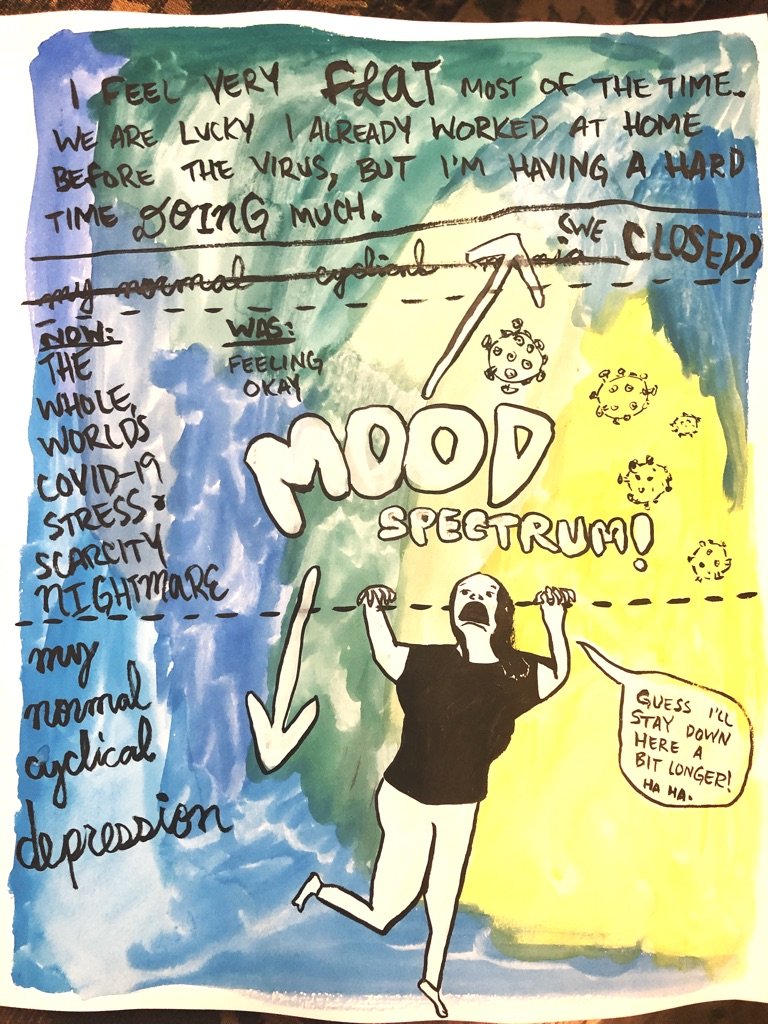 I FEEL VERY FLAT MOST OF THE TIME.
WE ARE LUCKY I ALREADY WORKED AT HOME
BEFORE THE VIRUS, BUT I'M HAVING A HARD
TIME DOING MUCH.
(WE CLOSED)
my normal cyclical mania
NOW:
THE
WHOLE,
WORLDS
COVID-19
STRESS &
SCARCITY
NIGHTMARE
WAS:
FEELING
OKAY
MOOD
SPECTRUM!
my
normal
cyclical
depression
GUESS I'LL
STAY DOWN
HERE A
BIT LONGER!
HA HA.